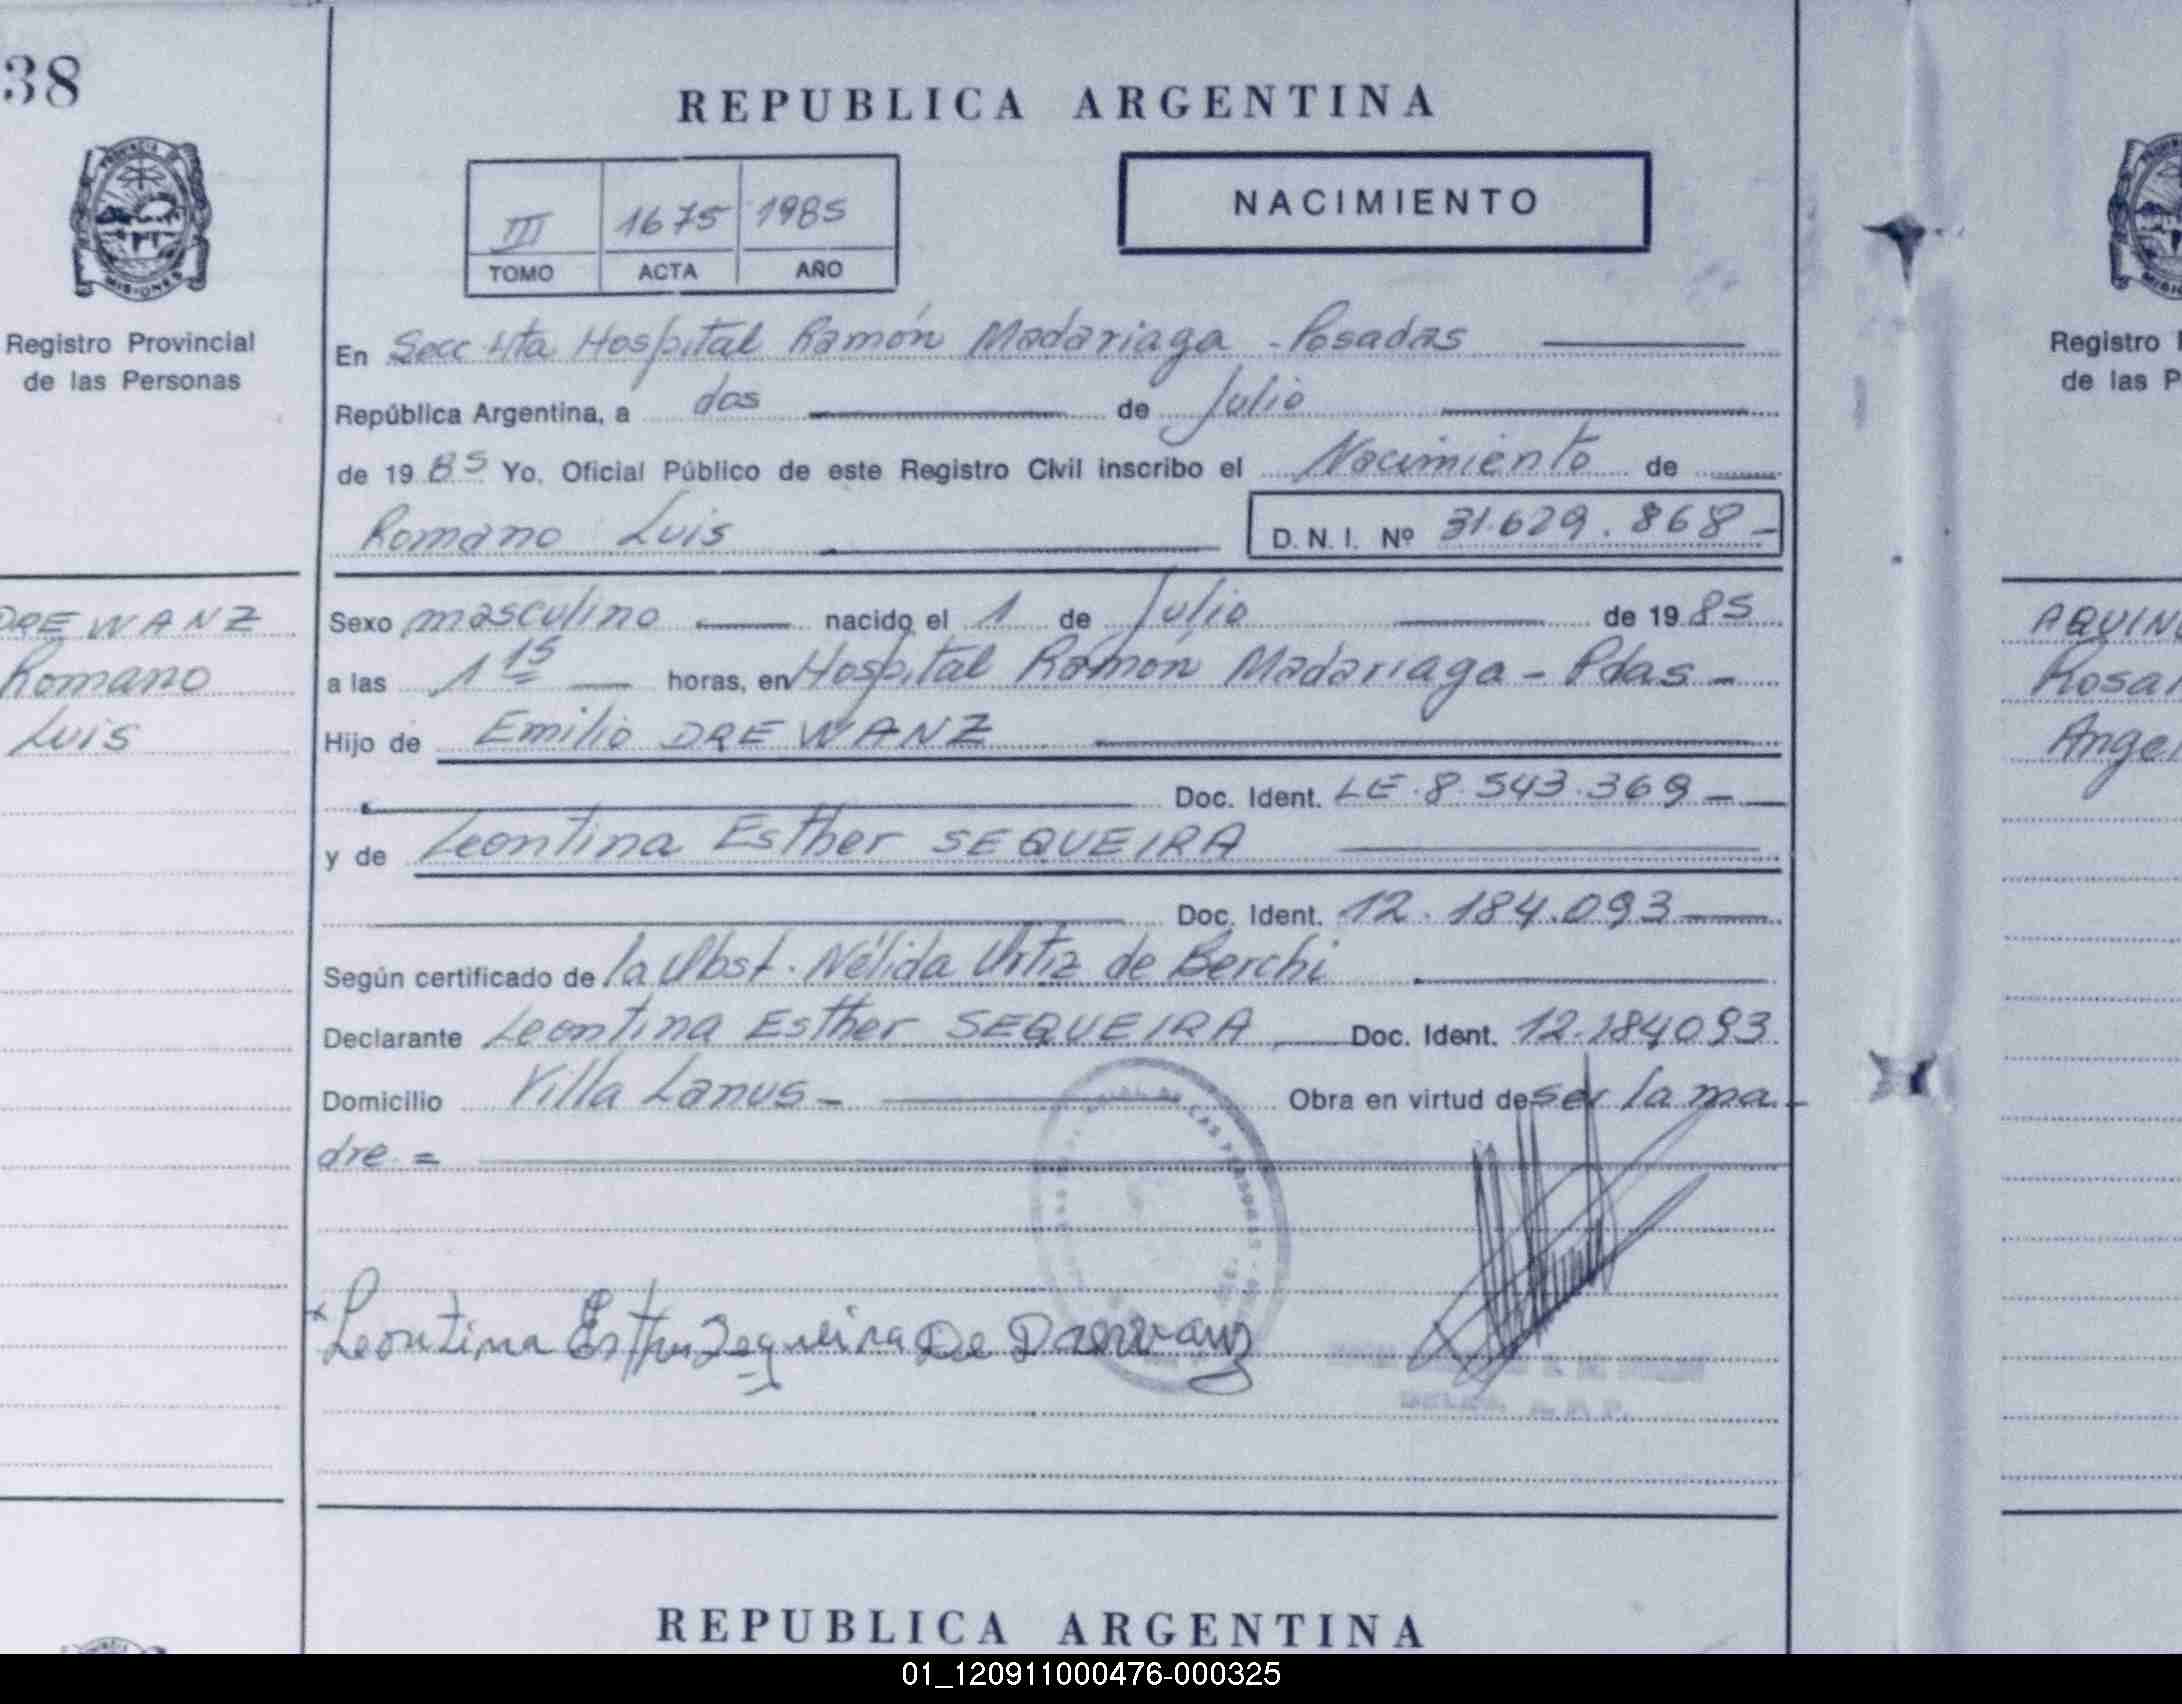 38
PROVINCIA DE
MISIONES
Registro Provincial
de las Personas
DREWANZ
Romano
Luis
REPUBLICA ARGENTINA
III 1675 1985
TOMO ACTA AÑO
NACIMIENTO
En Secc 4ta Hospital Ramón Madariaga - Posadas
República Argentina, a dos de Julio
de 19 85 Yo, Oficial Público de este Registro Civil inscribo el Nacimiento de
Romano Luis D.N.I. Nº 31.629.868-
Sexo masculino nacido el 1 de Julio de 19 85
a las 1 15 horas, en Hospital Ramón Madariaga - Pdas -
Hijo de Emilio DREWANZ
Doc. Ident. LE. 8.543.369 -
y de Leontina Esther SEQUEIRA
Doc. Ident. 12.184.093
Según certificado de la Obst. Nélida Ortiz de Berchi
Declarante Leontina Esther SEQUEIRA Doc. Ident. 12.184093
Domicilio Villa Lanus - Obra en virtud de ser la ma-
dre =
Leontina Esther Sequeira De Drewanz
REPUBLICA ARGENTINA
Registro
de las P
AQUIN
Rosa
Ange
01_120911000476-000325